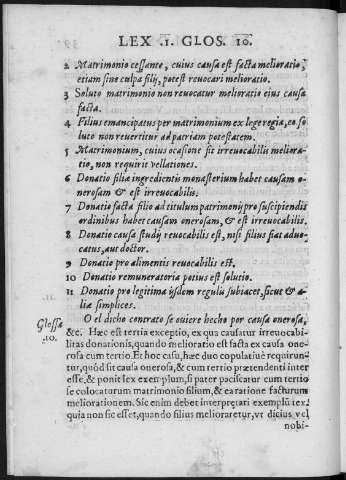 LEX .1. GLOS. 10.
2 Matrimonio cessante, cuius causa est facta melioratio,
etiam sine culpa filij, potest revocari melioratio.
3 Soluto matrimonio non revocatur melioratio ejus causa
facta.
4 Filius emancipatus per matrimonium ex lege regia, eo so
luto non revertitur ad patriam potestatem.
5 Matrimonium, cuius ocasione fit irrevocabilis meliora-
tio, non requirit vellationes.
6 Donatio filiæ ingredientis monasterium habet causam o-
nerosam & est irrevocabilis.
7 Donatio facta filio ad titulum patrimonij pro suscipiendis
ordinibus habet causam onerosam, & est irrevocabilis.
8 Donatio causa studij revocabilis est, nisi filius fiat advo-
catus, aut doctor.
9 Donatio pro alimentis revocabilis est.
10 Donatio remuneratoria potius est solutio.
11 Donatio pro legitima ijsdem regulis subiacet, sicut & a-
liæ simplices.
Glossa
10.
O el dicho contrato se uviere hecho por causa onerosa,
&c. Hæc est tertia exceptio, ex qua causatur irrevocabi-
litas donationis, quando melioratio est facta ex causa one-
rosa cum tertio. Et hoc casu, hæc duo copulativè requirun-
tur, quòd sit causa onerosa, & cum tertio prætendenti inter
esse, & ponit lex exemplum, si pater paciscatur cum tertio
se colocaturum matrimonio filium, & ea ratione facturum
meliorationem. Sic enim debet interpretari exemplũ lex,
quia non sic esset, quando filius melioraretur, vt dicius vel
nobi-